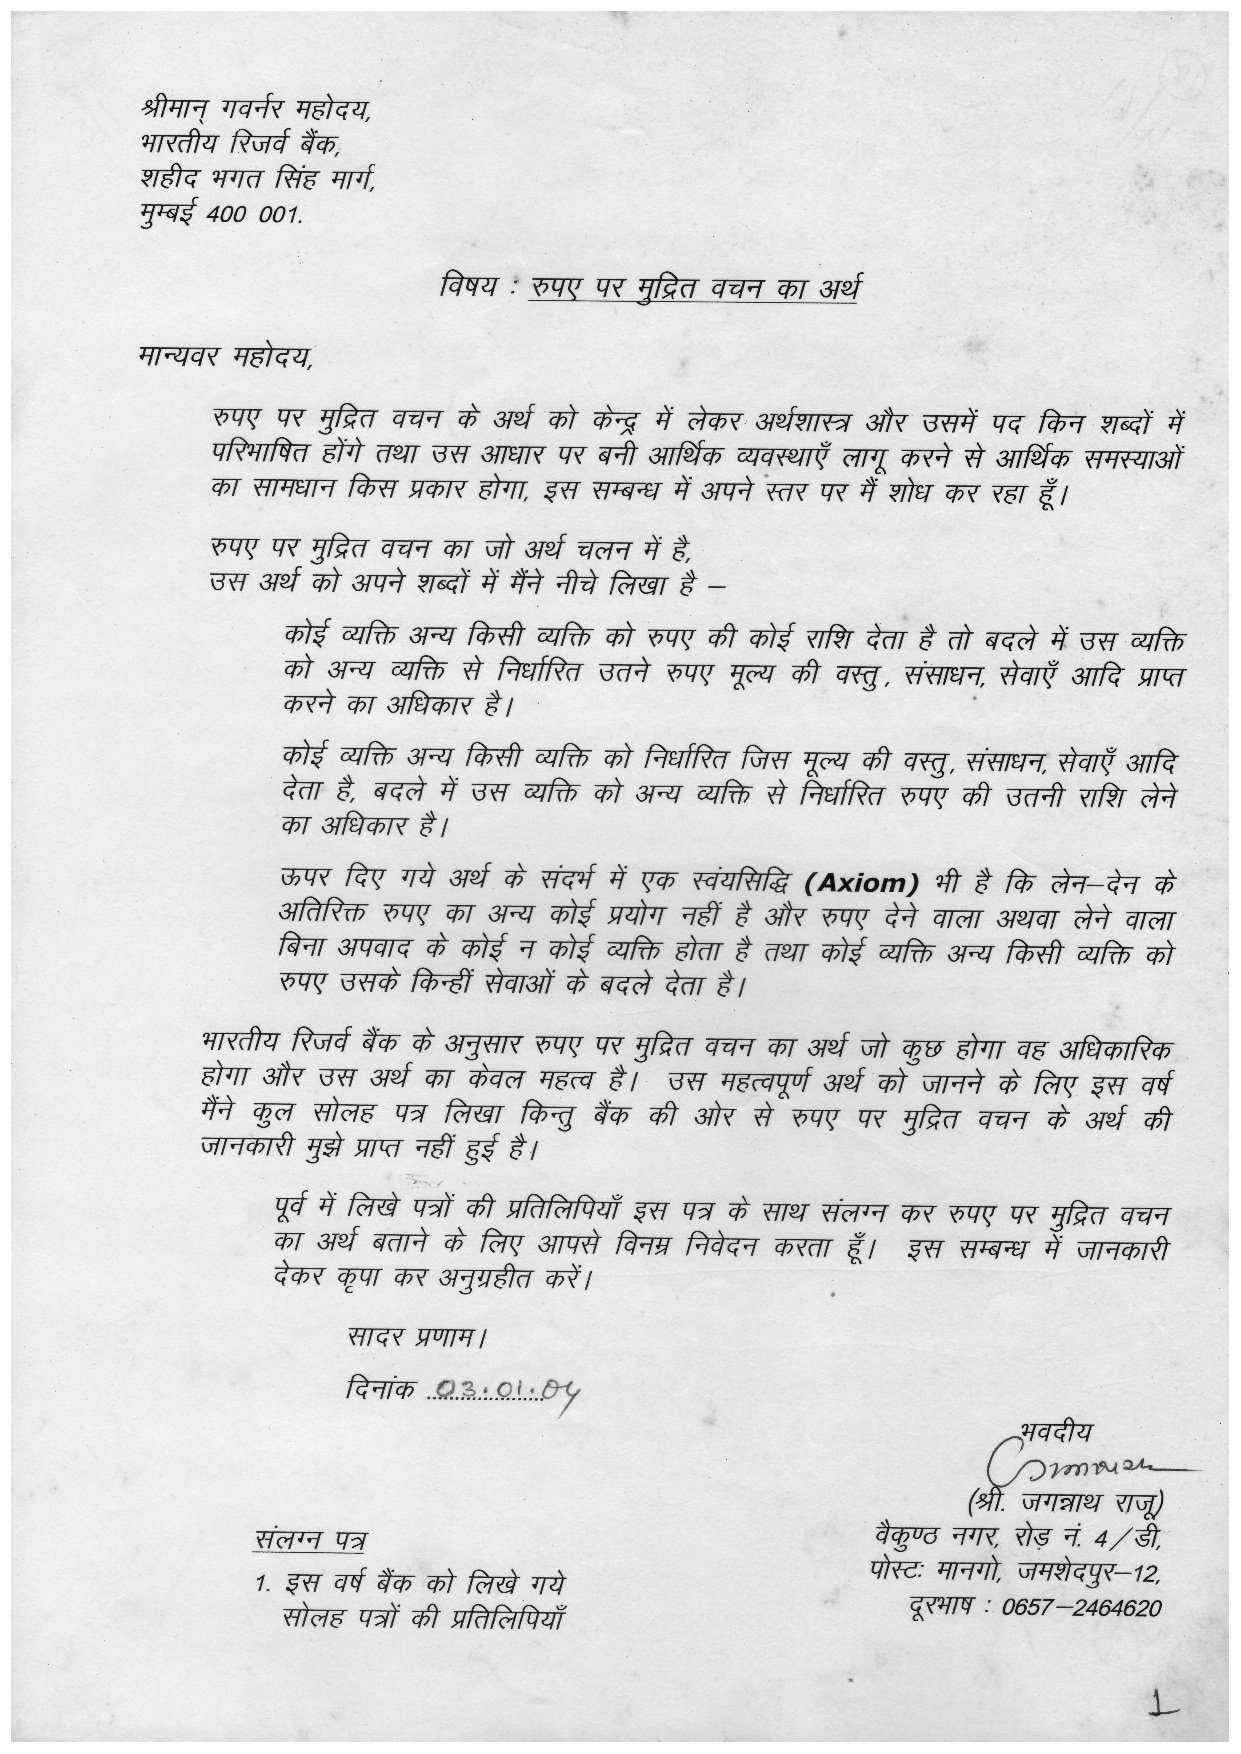 श्रीमान् गवर्नर महोदय,
भारतीय रिजर्व बैंक,
शहीद भगत सिंह मार्ग,
मुम्बई 400 001.
विषय : रुपए पर मुद्रित वचन का अर्थ
मान्यवर महोदय,
रुपए पर मुद्रित वचन के अर्थ को केन्द्र् में लेकर अर्थशास्त्र और उसमें पद किन शब्दों में
परिभाषित होंगे तथा उस आधार पर बनी आर्थिक व्यवस्थाएँ लागू करने से आर्थिक समस्याओं
का सामधान किस प्रकार होगा, इस सम्बन्ध में अपने स्तर पर मैं शोध कर रहा हूँ।
रुपए पर मुद्रित वचन का जो अर्थ चलन में है,
उस अर्थ को अपने शब्दों में मैंने नीचे लिखा है –
कोई व्यक्ति अन्य किसी व्यक्ति को रुपए की कोई राशि देता है तो बदले में उस व्यक्ति
को अन्य व्यक्ति से निर्धारित उतने रुपए मूल्य की वस्तु, संसाधन, सेवाएँ आदि प्राप्त
करने का अधिकार है।
कोई व्यक्ति अन्य किसी व्यक्ति को निर्धारित जिस मूल्य की वस्तु, संसाधन, सेवाएँ आदि
देता है, बदले में उस व्यक्ति को अन्य व्यक्ति से निर्धारित रुपए की उतनी राशि लेने
का अधिकार है।
ऊपर दिए गये अर्थ के संदर्भ में एक स्वंयसिद्धि (Axiom) भी है कि लेन–देन के
अतिरिक्त रुपए का अन्य कोई प्रयोग नहीं है और रुपए देने वाला अथवा लेने वाला
बिना अपवाद के कोई न कोई व्यक्ति होता है तथा कोई व्यक्ति अन्य किसी व्यक्ति को
रुपए उसके किन्हीं सेवाओं के बदले देता है।
भारतीय रिजर्व बैंक के अनुसार रुपए पर मुद्रित वचन का अर्थ जो कुछ होगा वह अधिकारिक
होगा और उस अर्थ का केवल महत्व है। उस महत्वपूर्ण अर्थ को जानने के लिए इस वर्ष
मैंने कुल सोलह पत्र लिखा किन्तु बैंक की ओर से रुपए पर मुद्रित वचन के अर्थ की
जानकारी मुझे प्राप्त नहीं हुई है।
पूर्व में लिखे पत्रों की प्रतिलिपियाँ इस पत्र के साथ संलग्न कर रुपए पर मुद्रित वचन
का अर्थ बताने के लिए आपसे विनम्र निवेदन करता हूँ। इस सम्बन्ध में जानकारी
देकर कृपा कर अनुग्रहीत करें।
सादर प्रणाम।
दिनांक 03.01.04
भवदीय
(श्री. जगन्नाथ राजू)
वैकुण्ठ नगर, रोड़ नं. 4/डी,
पोस्टः मानगो, जमशेदपुर–12,
दूरभाष : 0657–2464620
संलग्न पत्र
1. इस वर्ष बैंक को लिखे गये
सोलह पत्रों की प्रतिलिपियाँ
1